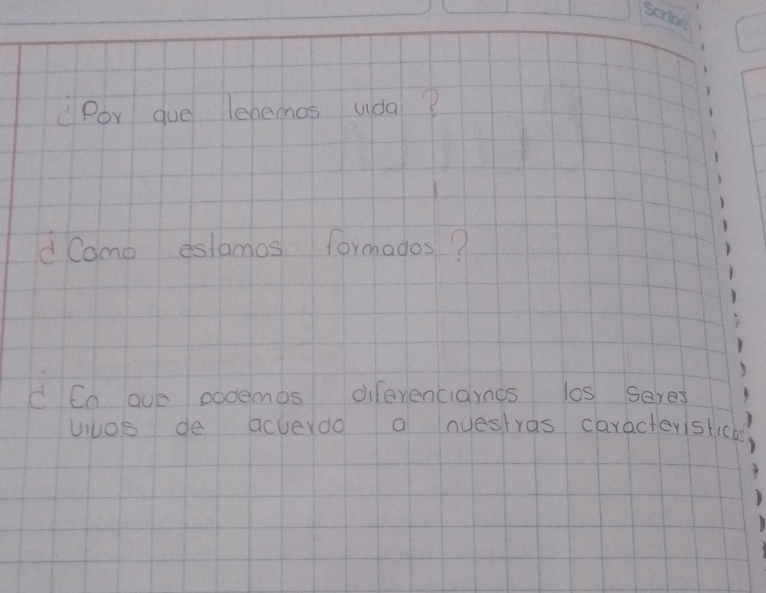 Scribe
¿Por que tenemos vida?
¿Como estamos formados?
¿En que podemos diferenciarnos los seres
vivos de acuerdo a nuestras caracteristicas